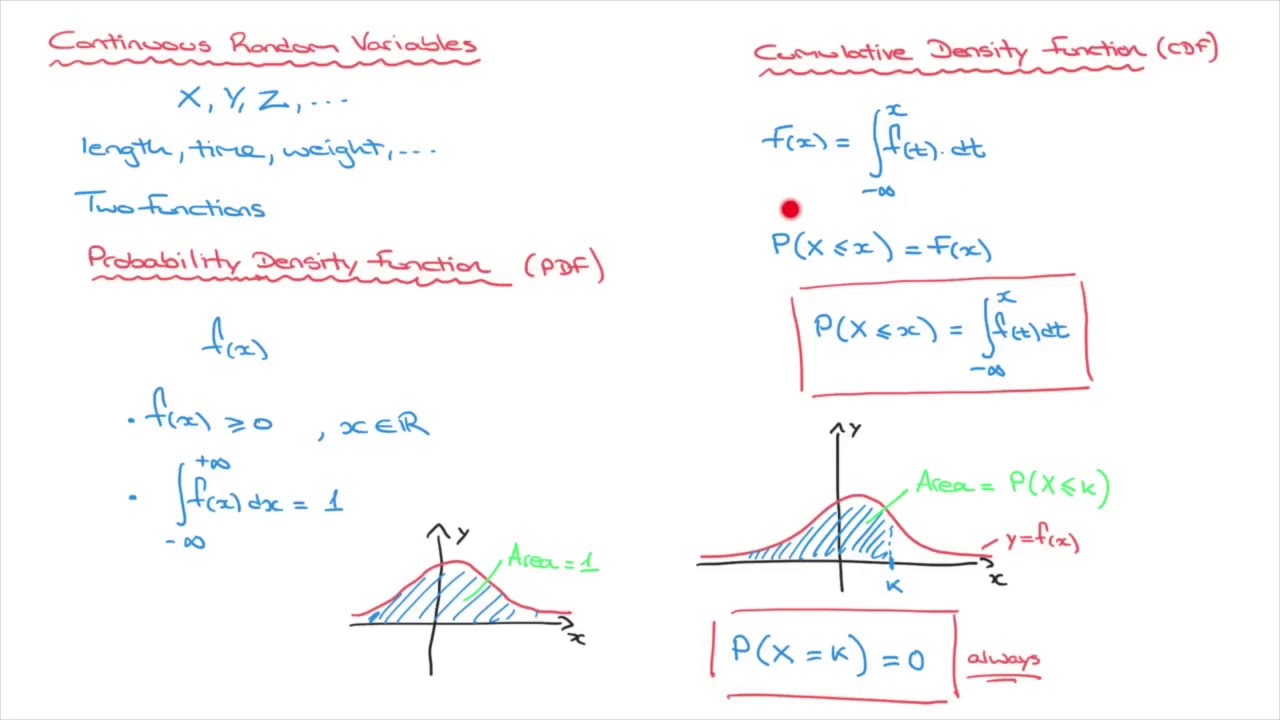 Continuous Random Variables
X, Y, Z, ...
length, time, weight, ...
Two functions
Probability Density Function (PDF)
f(x)
• f(x) ⩾ 0 , x ∈ ℝ
• ∫_{-∞}^{+∞} f(x) dx = 1
y
Area = 1
x
Cumulative Density Function (CDF)
F(x) = ∫_{-∞}^{x} f(t) · dt
P(X ⩽ x) = F(x)
P(X ⩽ x) = ∫_{-∞}^{x} f(t) dt
y
Area = P(X ⩽ k)
y = f(x)
k
x
P(X = k) = 0
always